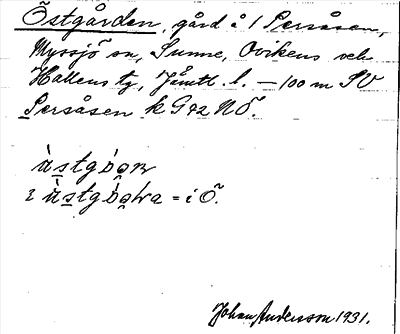 Östgården, gård å 1 Persåsen,
Myssjö sn, Sunne, Ovikens och
Hallens tg, Jämtl. l. — 100 m SV
Persåsen k G 92 NÖ.
i = i Ö.
Johan Andersson 1931.